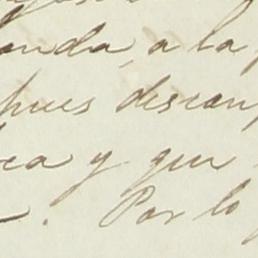 onda, a la
pues descan
ca y que
. Por lo